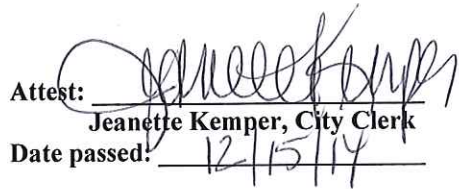 Attest: Jeanette Kemper
Jeanette Kemper, City Clerk
Date passed: 12/15/14